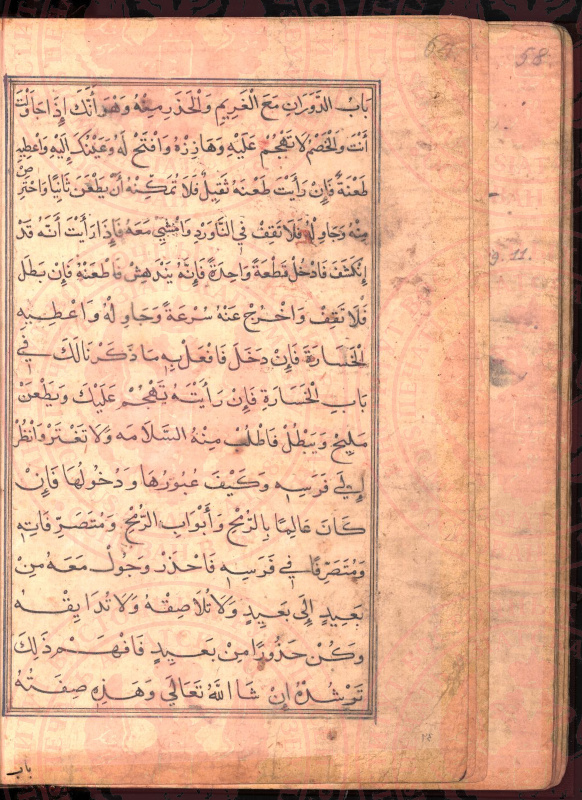 باب الدوران مع الغريم والحذر منه وهو أنك إذا جاولت
أنت والخصم لا تهجم عليه وهازره وافتح له وعينك إليه واعطيه
طعنة فإن رأيت طعنه ثقيل فلا تمكنه أن يطعن ثانيا واحترص
منه وجاوله فلا تقف في الناورد وامشي معه فإذا رأيت أنه قد
إنكشف فادخل قطعة واحدة فإنه يندهش فاطعنه فإن بطل
فلا تقف واخرج عنه سرعة وجاوله واعطيه
الخسارة فإن دخل فافعل به ما ذكرنا لك في
باب الخسارة فإن رأيته تهجم عليك ويطعن
مليح ويبطل فاطلب منه السلامه ولا تغتر وانظر
إلى فرسه وكيف عبورها ودخولها فإن
كان عالما بالرمح وأبواب الرمح ومتصرفاته
ومتصرفا في فرسه فاحذر وجول معه من
بعيد إلى بعيد ولا تلاصقه ولا تدايقه
وكن حذورا من بعيد فافهم ذلك
ترشده إن شا الله تعالى وهذه صفته
باب
58